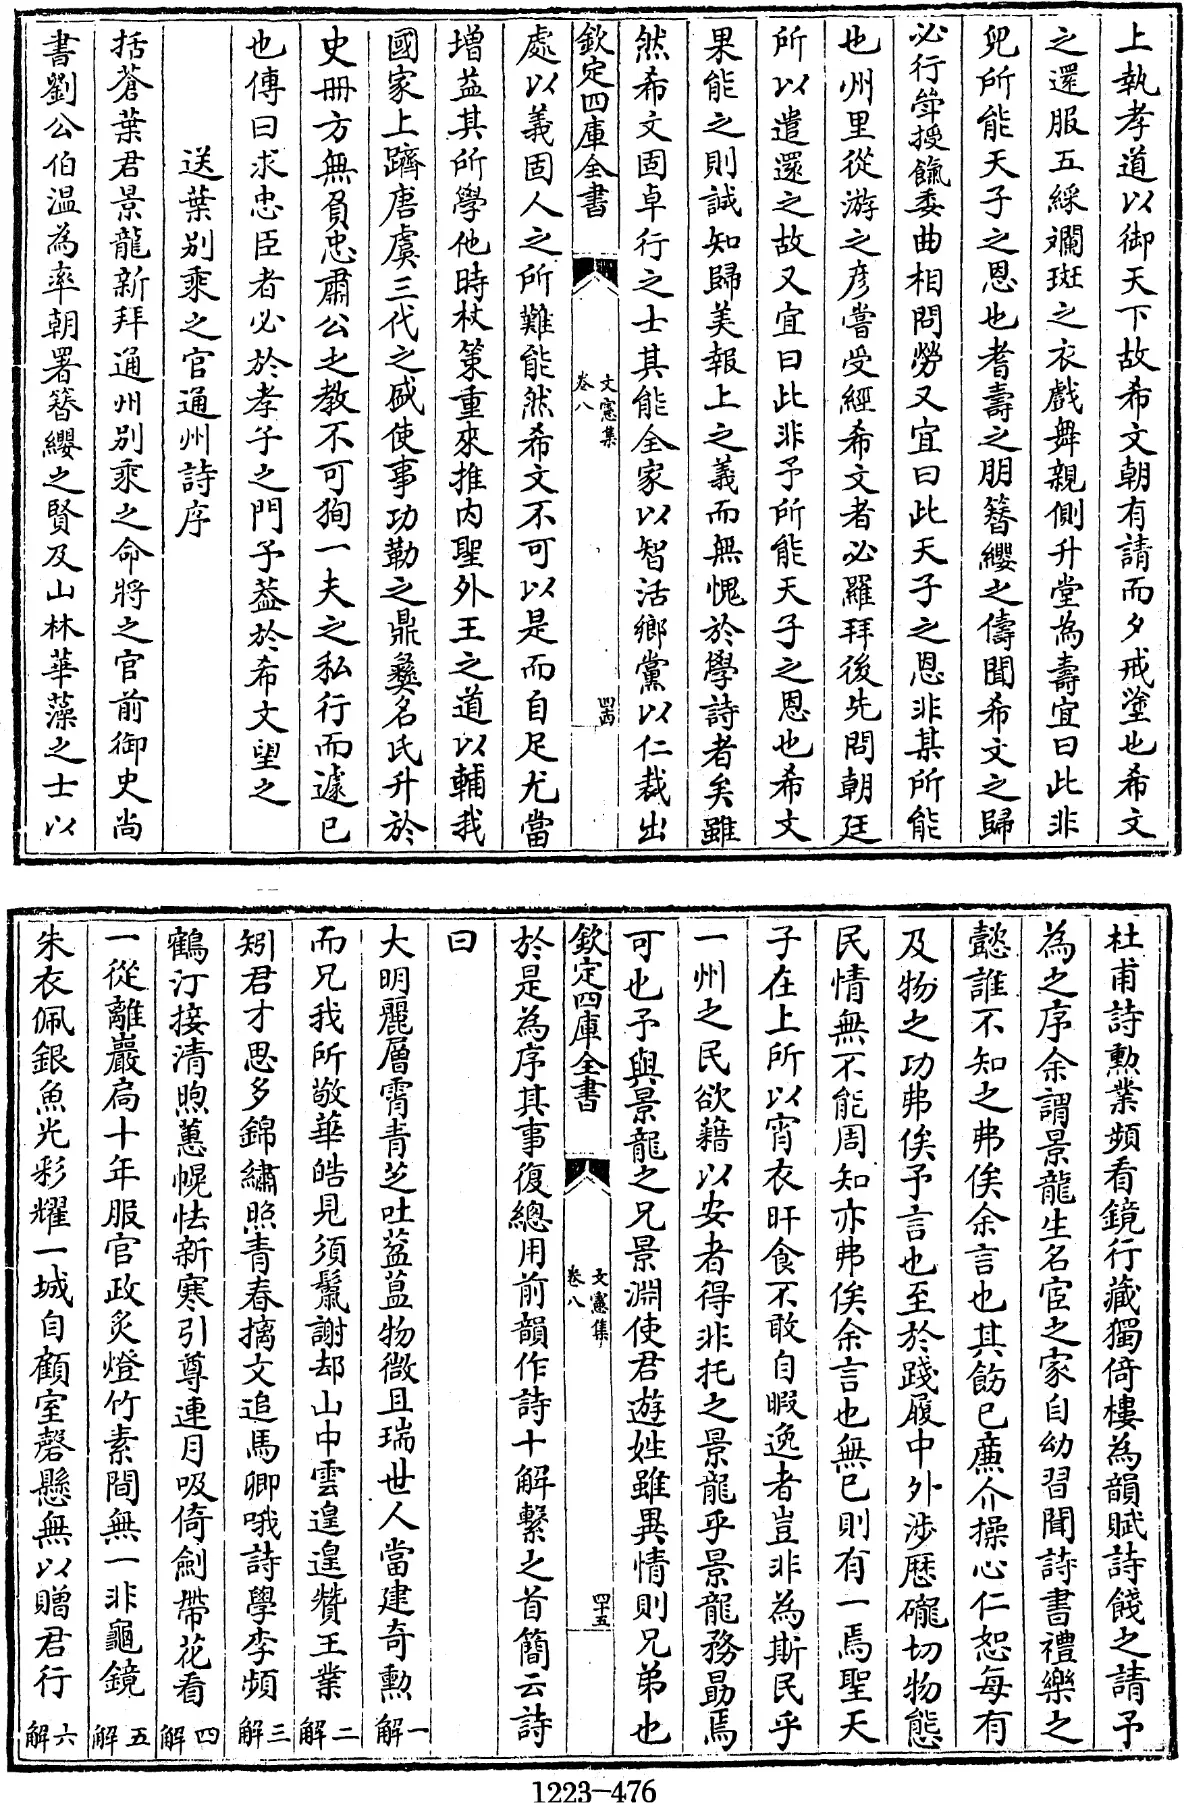 上執孝道以御天下故希文朝有請而夕戒塗也希文
之還服五綵斕斑之衣戲舞親側升堂為壽宜曰此非
兒所能天子之恩也耆壽之朋簪纓之儔聞希文之歸
必行帣授餼委曲相問勞又宜曰此天子之恩非某所能
也州里從游之彥嘗受經希文者必羅拜後先問朝廷
所以遣還之故又宜曰此非予所能天子之恩也希文
果能之則誠知歸美報上之義而無愧於學詩者矣雖
然希文固卓行之士其能全家以智活鄉黨以仁裁出
欽定四庫全書 文憲集 卷八 四十四
處以義固人之所難能然希文不可以是而自足尤當
增益其所學他時杖策重來推内聖外王之道以輔我
國家上躋唐虞三代之盛使事功勒之鼎彝名氏升於
史冊方無負忠肅公之教不可狥一夫之私行而遽已
也傳曰求忠臣者必於孝子之門予葢於希文望之
送葉別乘之官通州詩序
括蒼葉君景龍新拜通州別乘之命將之官前御史尚
書劉公伯温為率朝署簪纓之賢及山林華藻之士以
杜甫詩勲業頻看鏡行藏獨倚樓為韻賦詩餞之請予
為之序余謂景龍生名宦之家自幼習聞詩書禮樂之
懿誰不知之弗俟余言也其飭已亷介操心仁恕每有
及物之功弗俟予言也至於踐履中外渉歴礲切物態
民情無不能周知亦弗俟余言也無已則有一焉聖天
子在上所以宵衣旰食不敢自暇逸者豈非為斯民乎
一州之民欲藉以安者得非托之景龍乎景龍務勗焉
可也予與景龍之兄景淵使君遊姓雖異情則兄弟也
欽定四庫全書 文憲集 卷八 四十五
於是為序其事復總用前韻作詩十解繫之首簡云詩
曰
大明麗層霄青芝吐葢葢物微且瑞世人當建奇勲 一解
而兄我所敬華皓見須鬣謝却山中雲遑遑贊王業 二解
矧君才思多錦繡照青春摛文追馬卿哦詩學李頻 三解
鶴汀接清煦蕙幌怯新寒引尊連月吸倚劍帶花看 四解
一從離巖扃十年服官政炙燈竹素間無一非龜鏡 五解
朱衣佩銀魚光彩耀一城自顧室磬懸無以贈君行 六解
1223-476